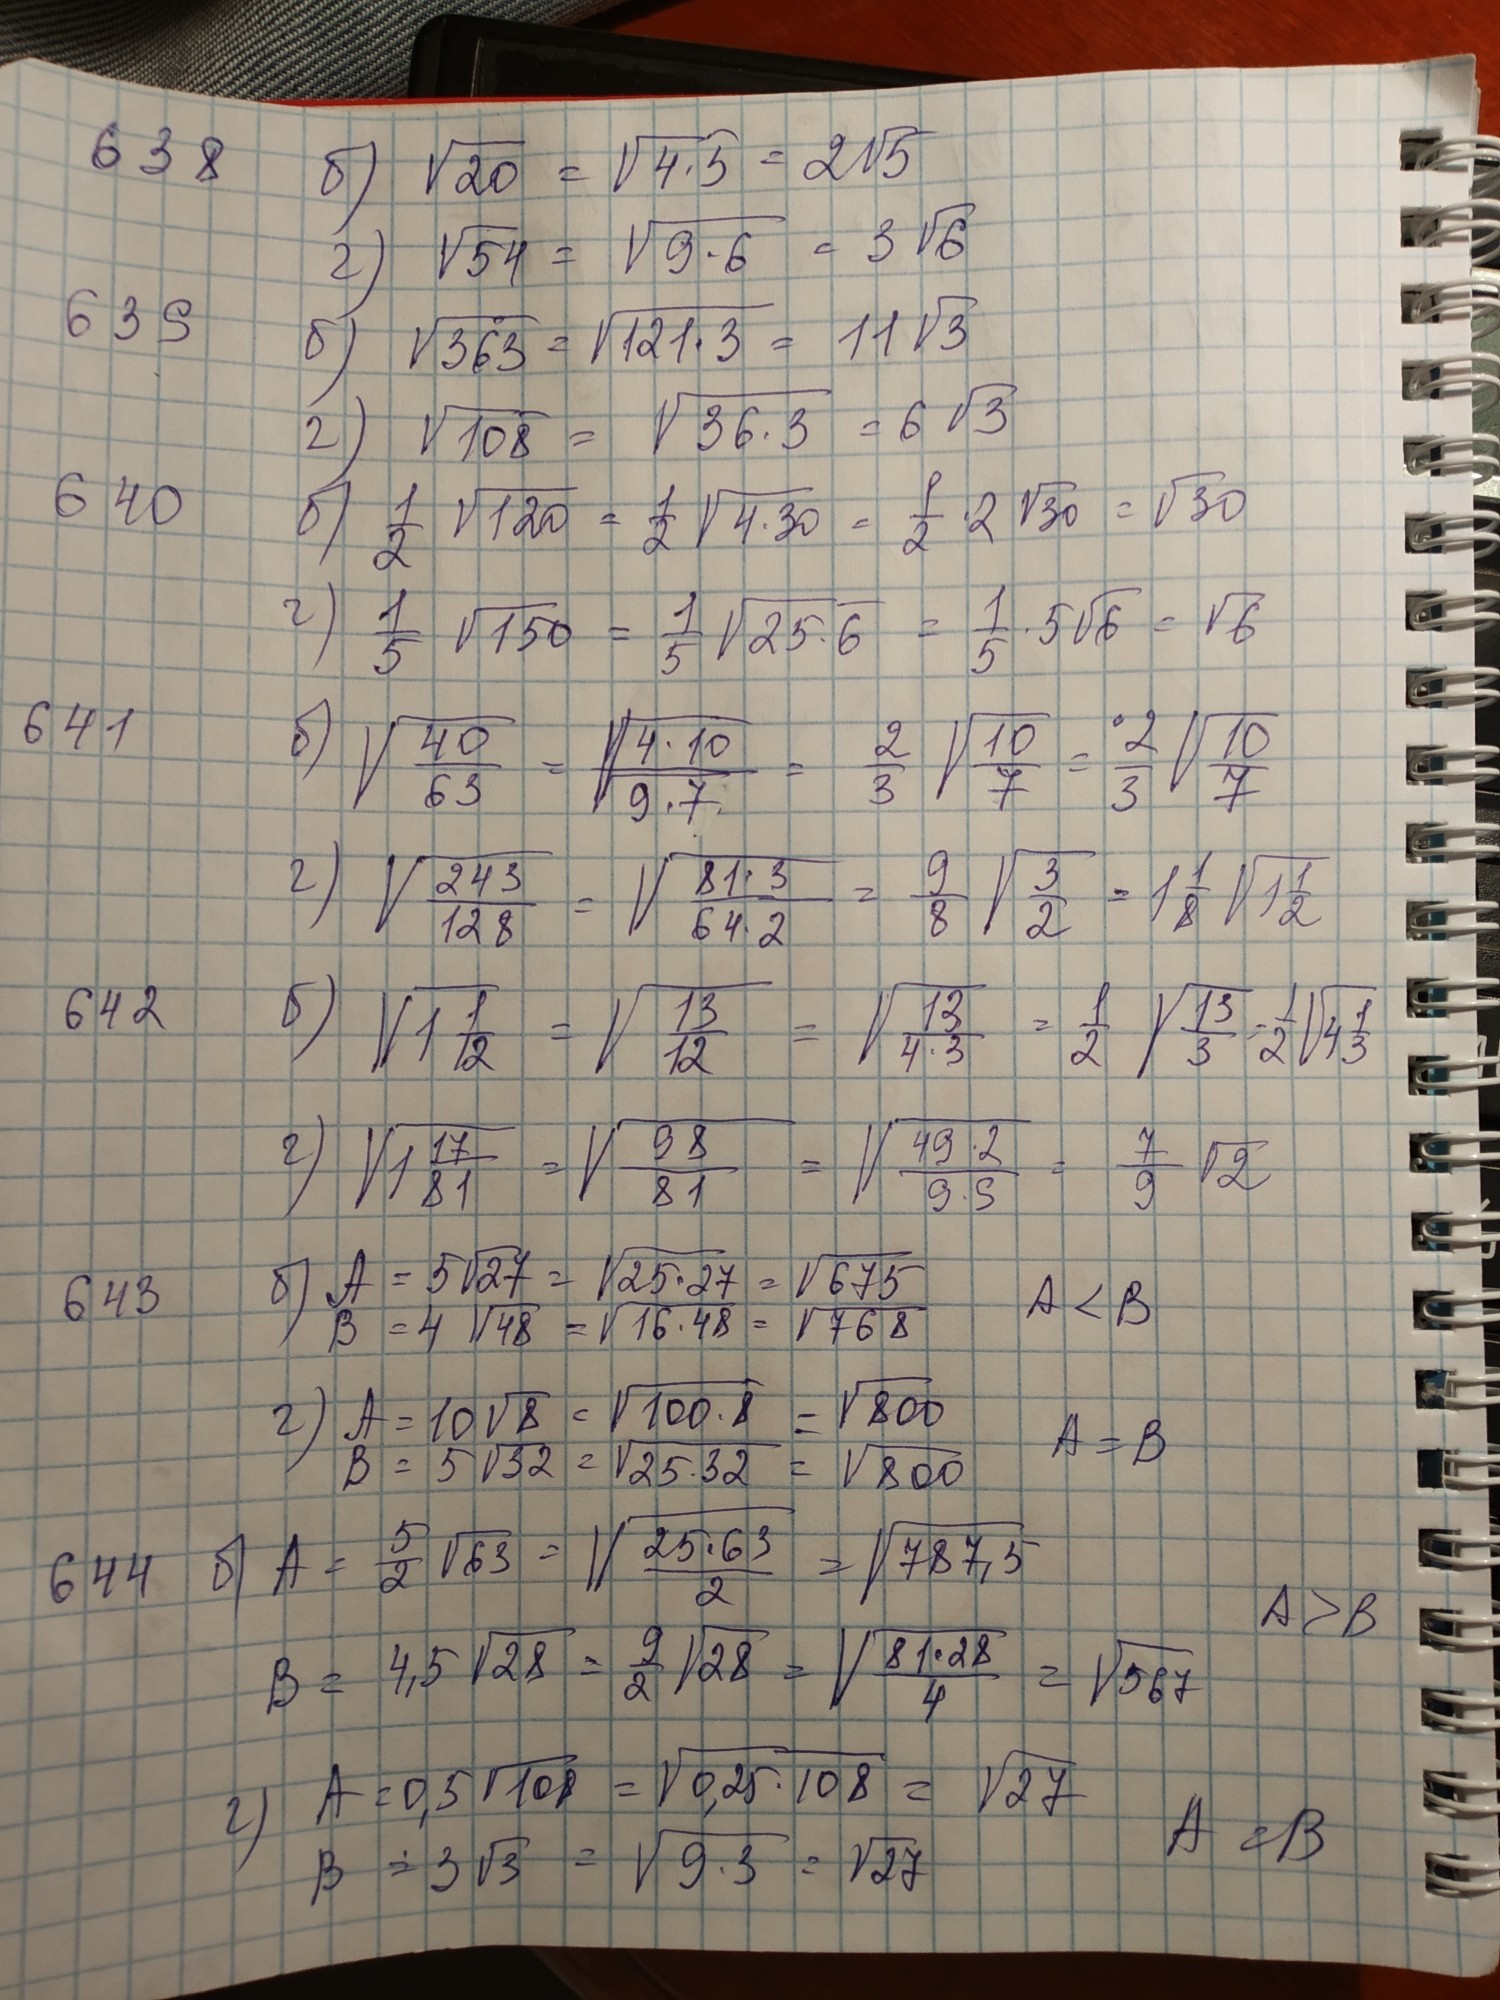 638 б) √20 = √4·5 = 2√5
г) √54 = √9·6 = 3√6
639 б) √363 = √121·3 = 11√3
г) √108 = √36·3 = 6√3
640 б) 1/2 √120 = 1/2 √4·30 = 1/2 ·2√30 = √30
г) 1/5 √150 = 1/5 √25·6 = 1/5 ·5√6 = √6
641 б) √40/63 = √4·10/9·7 = 2/3 √10/7 = 2/3 √10/7
г) √243/128 = √81·3/64·2 = 9/8 √3/2 = 1 1/8 √1 1/2
642 б) √1 1/12 = √13/12 = √13/4·3 = 1/2 √13/3 = 1/2 √4 1/3
г) √1 17/81 = √98/81 = √49·2/9·9 = 7/9 √2
643 б) A = 5√27 = √25·27 = √675 A < B
B = 4√48 = √16·48 = √768
г) A = 10√8 = √100·8 = √800 A = B
B = 5√32 = √25·32 = √800
644 б) A = 5/2 √63 = √25·63/2 = √787,5
A > B
B = 4,5√28 = 9/2 √28 = √81·28/4 = √567
г) A = 0,5√108 = √0,25·108 = √27 A = B
B = 3√3 = √9·3 = √27